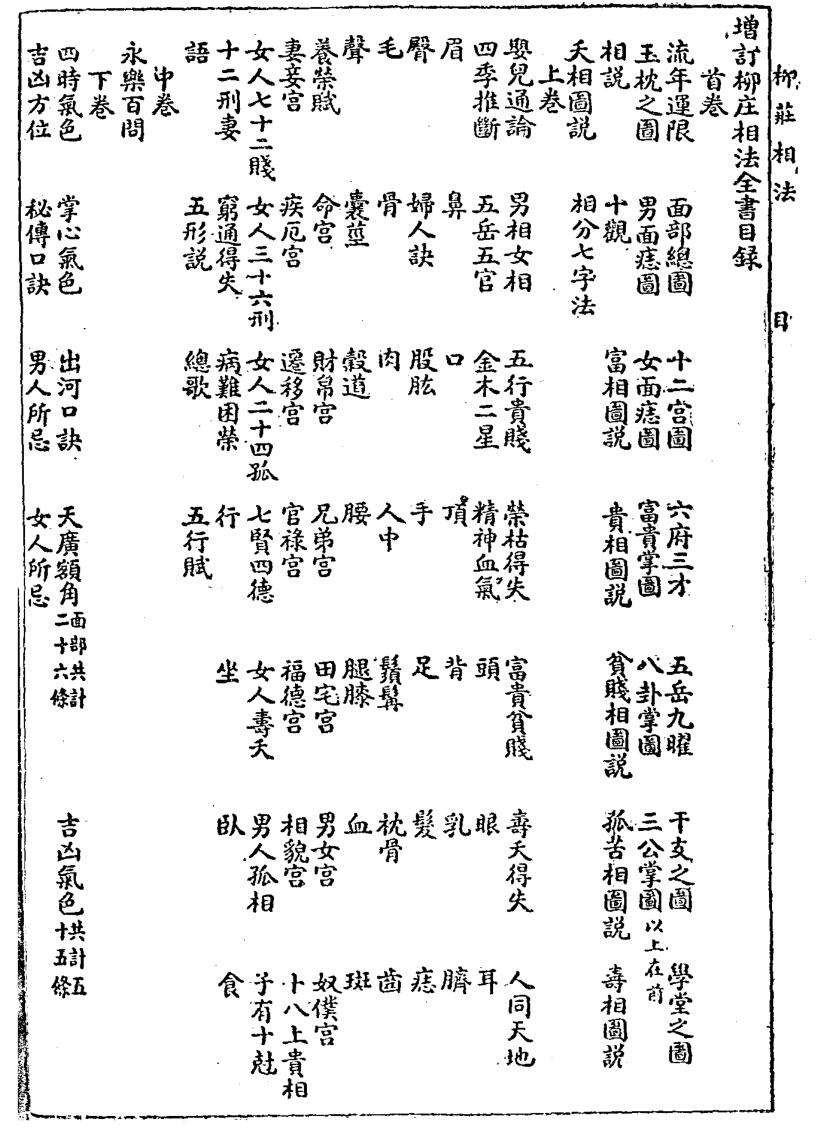 柳莊相法 目
增訂柳庄相法全書目录
首卷
流年運限 面部總圖 十二宫圖 六府三才 五岳九曜 干支之圖 學堂之圖
玉枕之圖 男面痣圖 女面痣圖 富貴掌圖 八卦掌圖 三公掌圖 以上在前
相説 十觀 富相圖説 貴相圖説 貧賤相圖説 孤苦相圖説 壽相圖説
夭相圖説 相分七字法
上卷
嬰兒通論 男相女相 五行貴賤 榮枯得失 富貴貧賤 壽夭得失 人同天地
四季推斷 五岳五官 金木二星 精神血氣 頭 眼 耳
眉 鼻 口 頂 背 乳 臍
臀 婦人訣 股肱 手 足 髮 痣
毛 骨 肉 人中 鬚髯 枕骨 齒
聲 囊莖 穀道 腰 腿膝 血 斑
養榮賦 命宫 財帛宫 兄弟宫 田宅宫 男女宫 奴僕宫
妻妾宫 疾厄宫 遷移宫 官祿宫 福德宫 相貌宫 卜八上貴相
女人七十二賤 女人三十六刑 女人二十四孤 七賢四德 女人壽夭 男人孤相 子有十尅
十二刑妻 窮通得失 病難困榮 行 坐 臥 食
語 五形説 總歌 五行賦
中卷
永樂百問
下卷
四時氣色 掌心氣色 出河口訣 天廣額角 面部共計二十六條 吉凶氣色 共計五十五條
吉凶方位 秘傳口訣 男人所忌 女人所忌